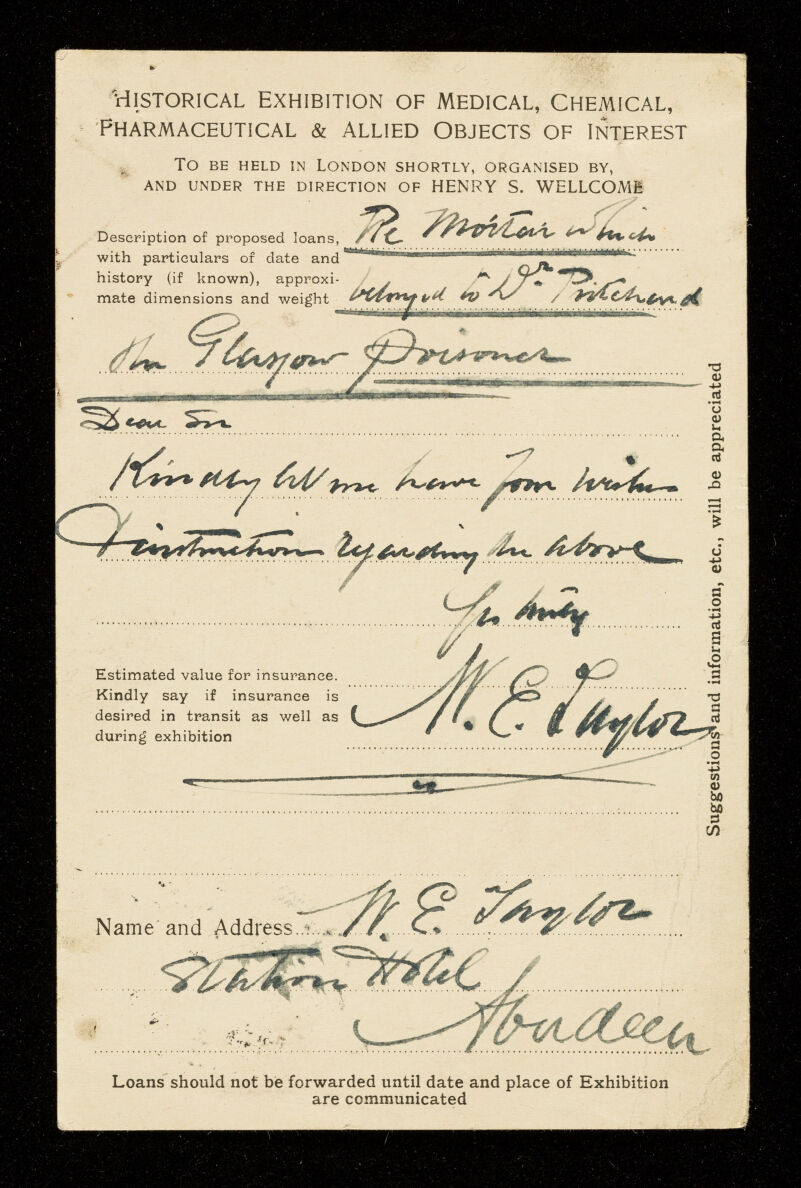 HISTORICAL EXHIBITION OF MEDICAL, CHEMICAL,
PHARMACEUTICAL & ALLIED OBJECTS OF INTEREST
TO BE HELD IN LONDON SHORTLY, ORGANISED BY,
AND UNDER THE DIRECTION OF HENRY S. WELLCOME
Description of proposed loans,
with particulars of date and
history (if known), approxi-
mate dimensions and weight
Re Mortar which
belonged to Dr. Pritchard
the Glasgow poisoner
Dear Sir
Kindly let me have your wishes
& instructions regarding the above
Yrs truly
Estimated value for insurance.
Kindly say if insurance is
desired in transit as well as
during exhibition
W. E. Taylor
Name and Address W. E. Taylor
Station Hotel
Aberdeen
Loans should not be forwarded until date and place of Exhibition
are communicated
Suggestions and information, etc., will be appreciated